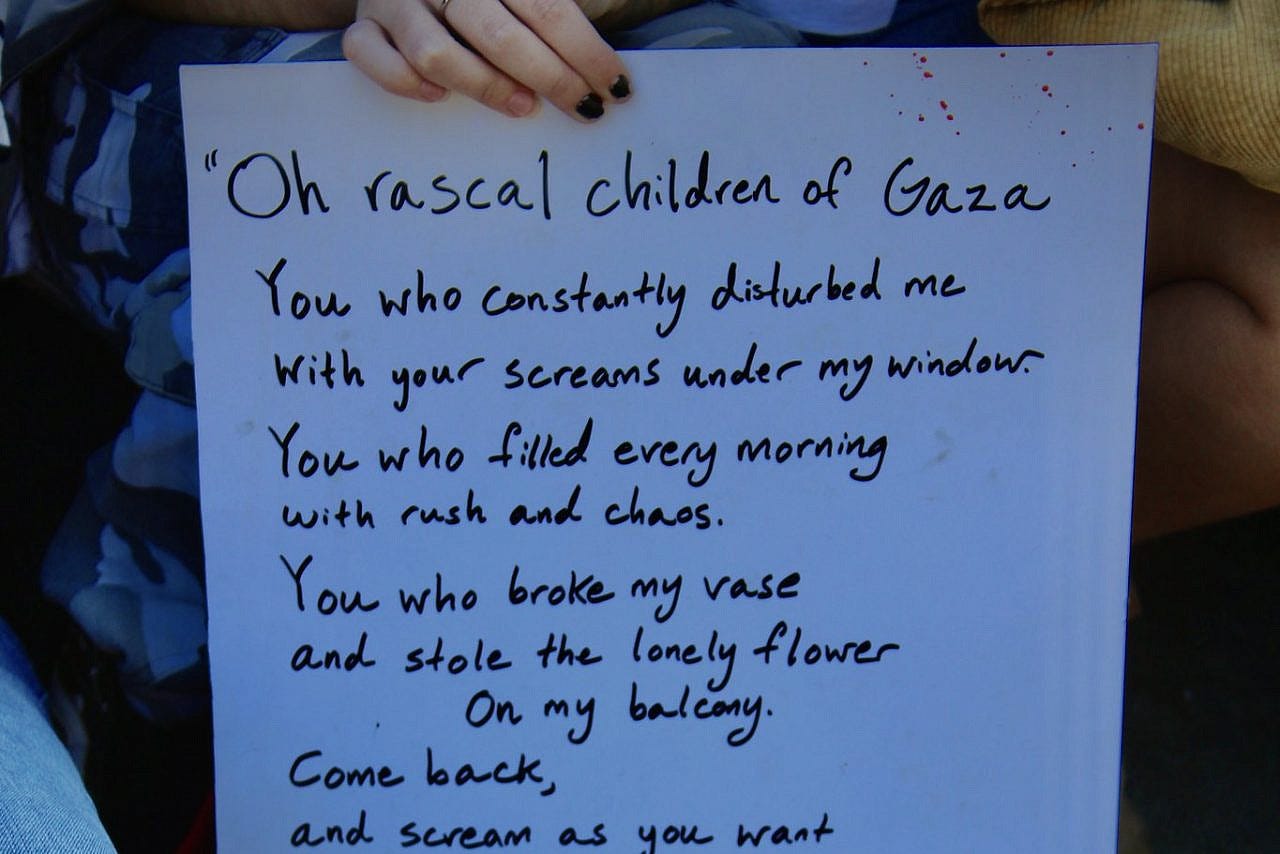 "Oh rascal children of Gaza
You who constantly disturbed me
with your screams under my window.
You who filled every morning
with rush and chaos.
You who broke my vase
and stole the lonely flower
On my balcony.
Come back,
and scream as you want